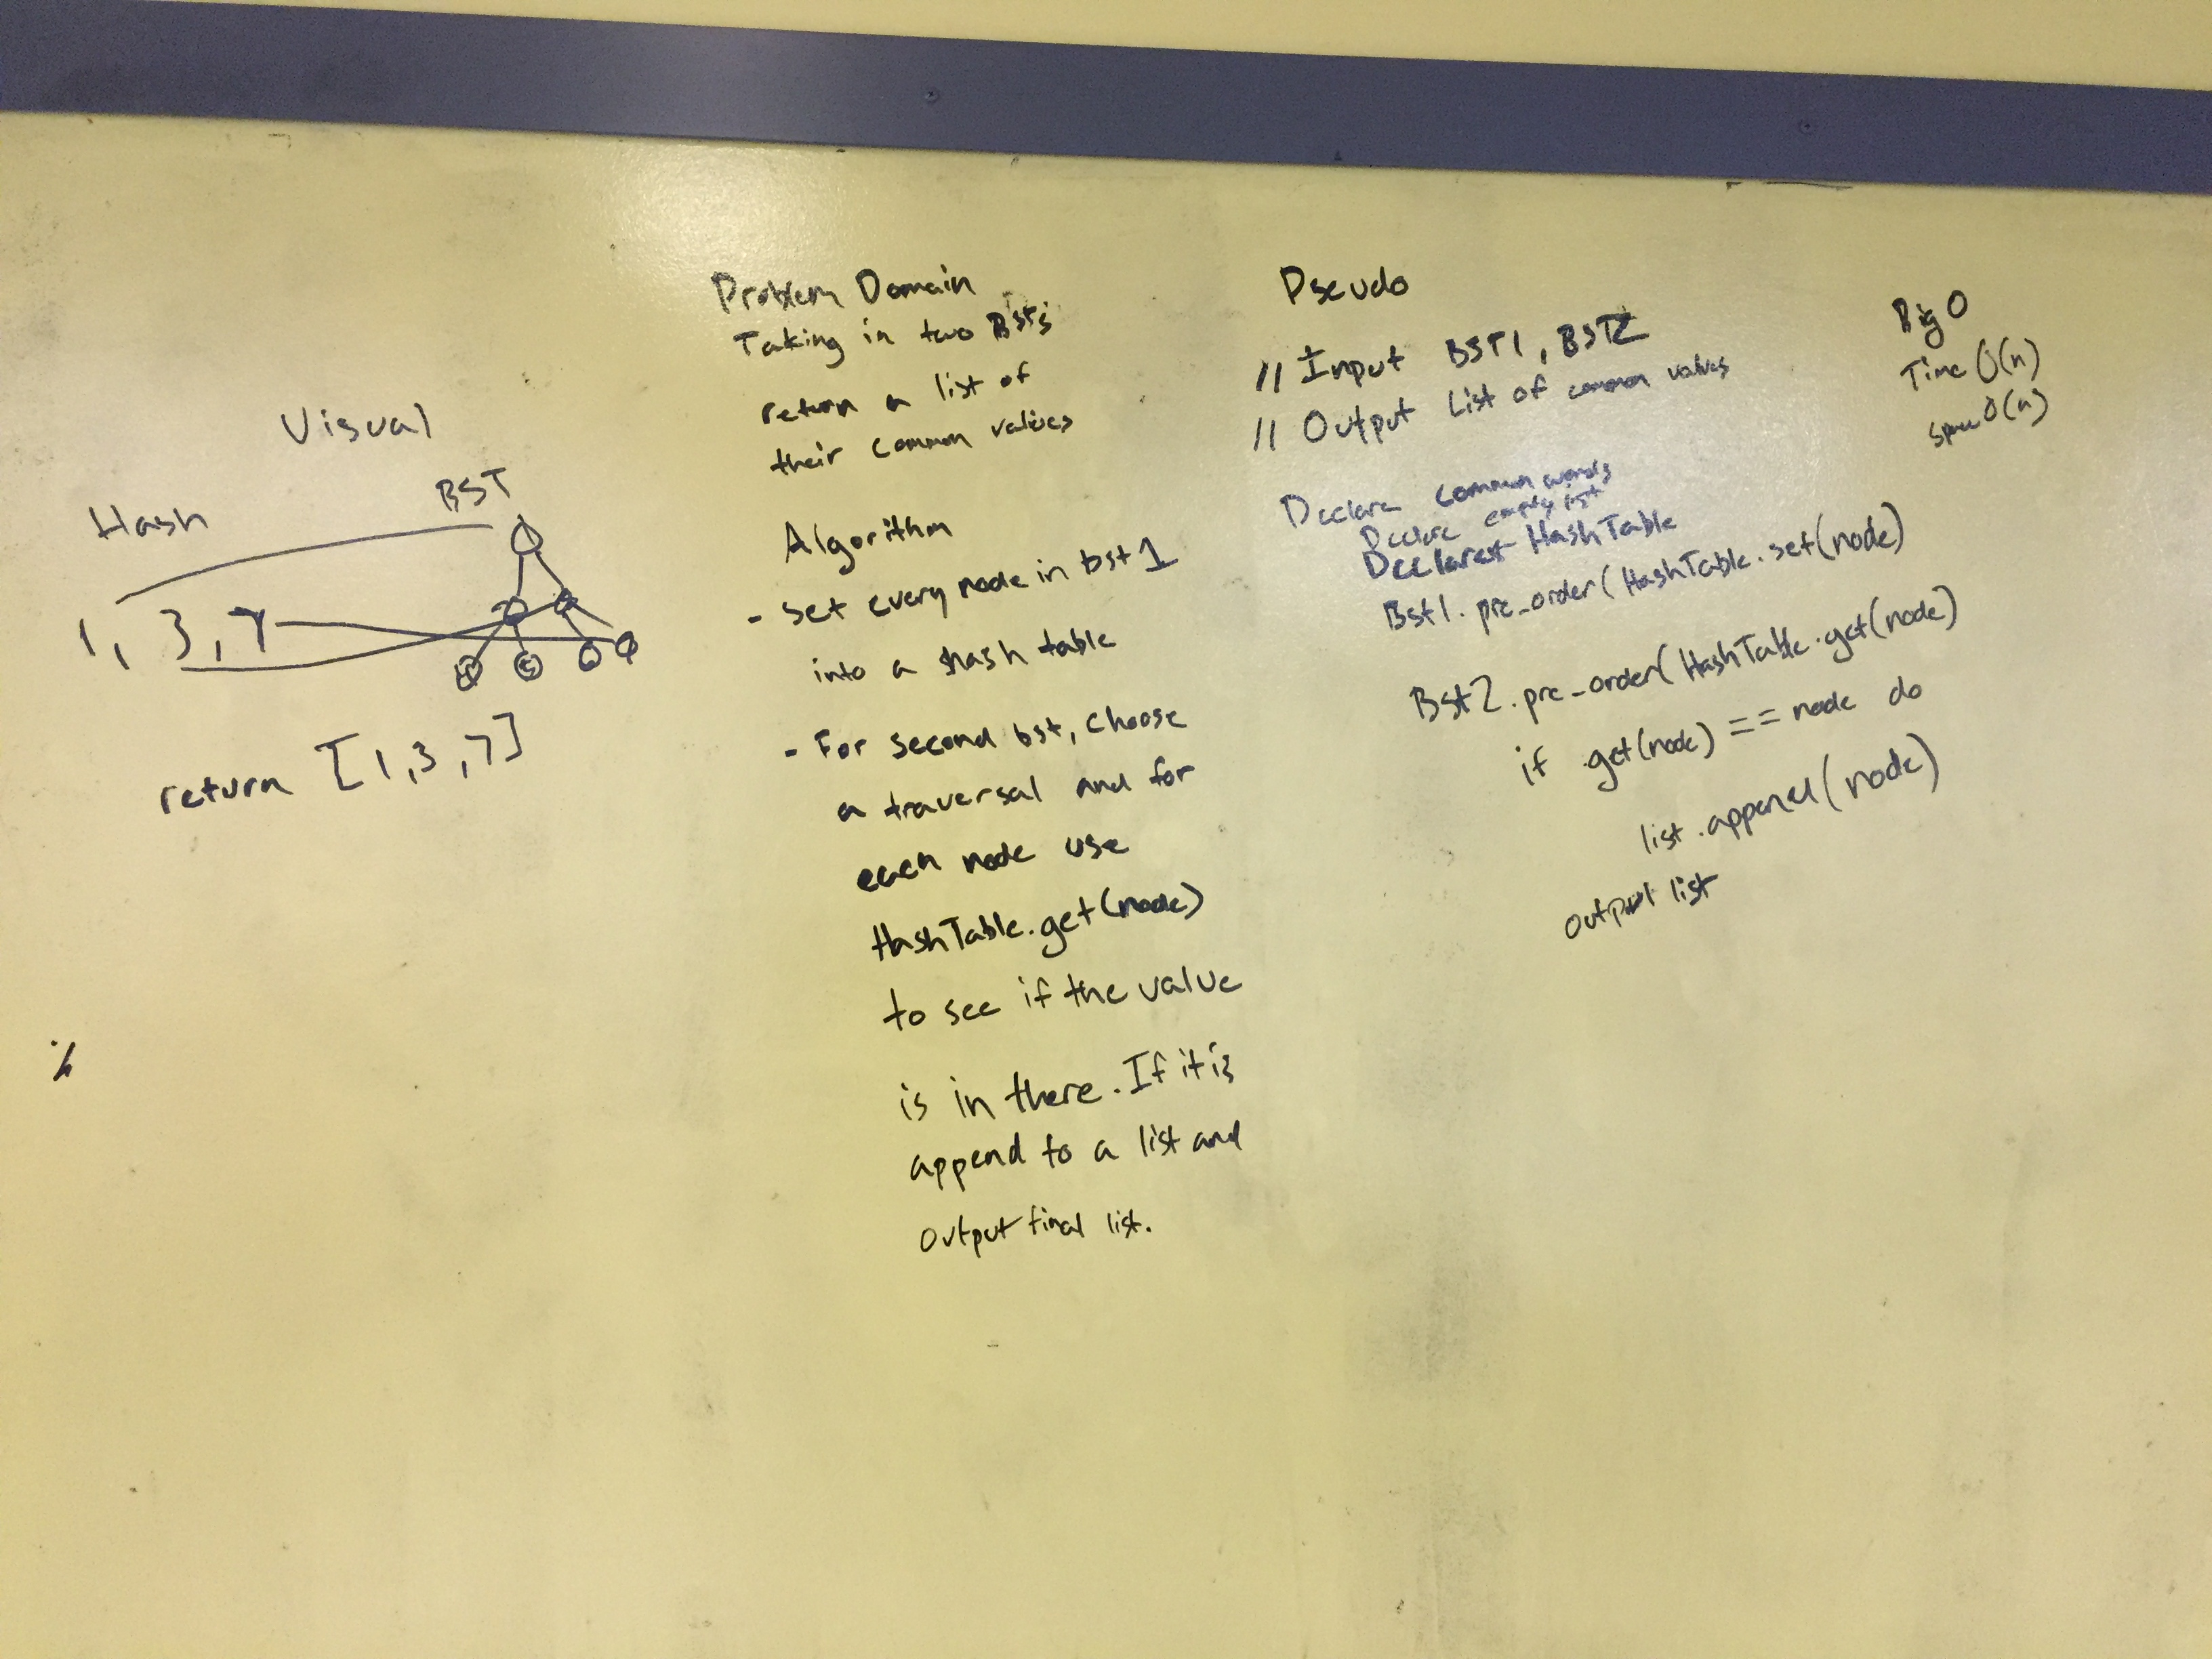 Visual
Hash
BST
1, 3, 7
return [1,3,7]
Problem Domain
Taking in two BSTs
return a list of
their common values
Algorithm
- Set every node in bst 1
into a hash table
- For second bst, choose
a traversal and for
each node use
HashTable.get(node)
to see if the value
is in there. If it is
append to a list and
output final list.
Pseudo
// Input BST1, BST2
// Output List of common values
Declare common words
Declare empty list
Declare HashTable
Bst1.pre_order(HashTable.set(node)
Bst2.pre_order(HashTable.get(node)
if .get(node) == node do
list.append(node)
output list
Big O
Time O(n)
Space O(n)